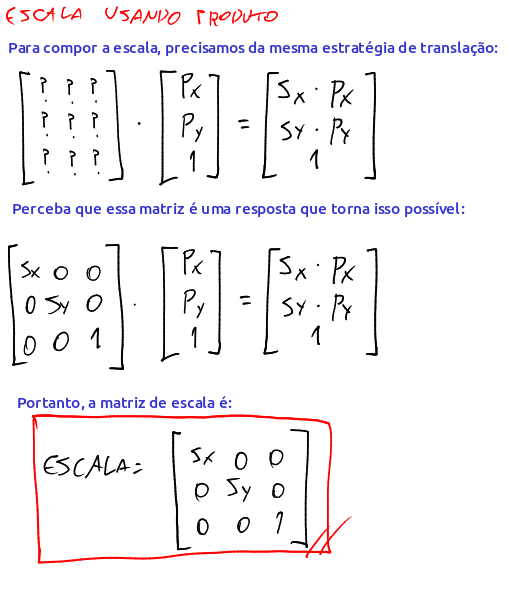 ESCALA USANDO PRODUTO
Para compor a escala, precisamos da mesma estratégia de translação:
? ? ? Px Sx · Px
? ? ? · Py = Sy · Py
? ? ? 1 1
Perceba que essa matriz é uma resposta que torna isso possível:
Sx 0 0 Px Sx · Px
0 Sy 0 · Py = Sy · Py
0 0 1 1 1
Portanto, a matriz de escala é:
Sx 0 0
ESCALA= 0 Sy 0
0 0 1